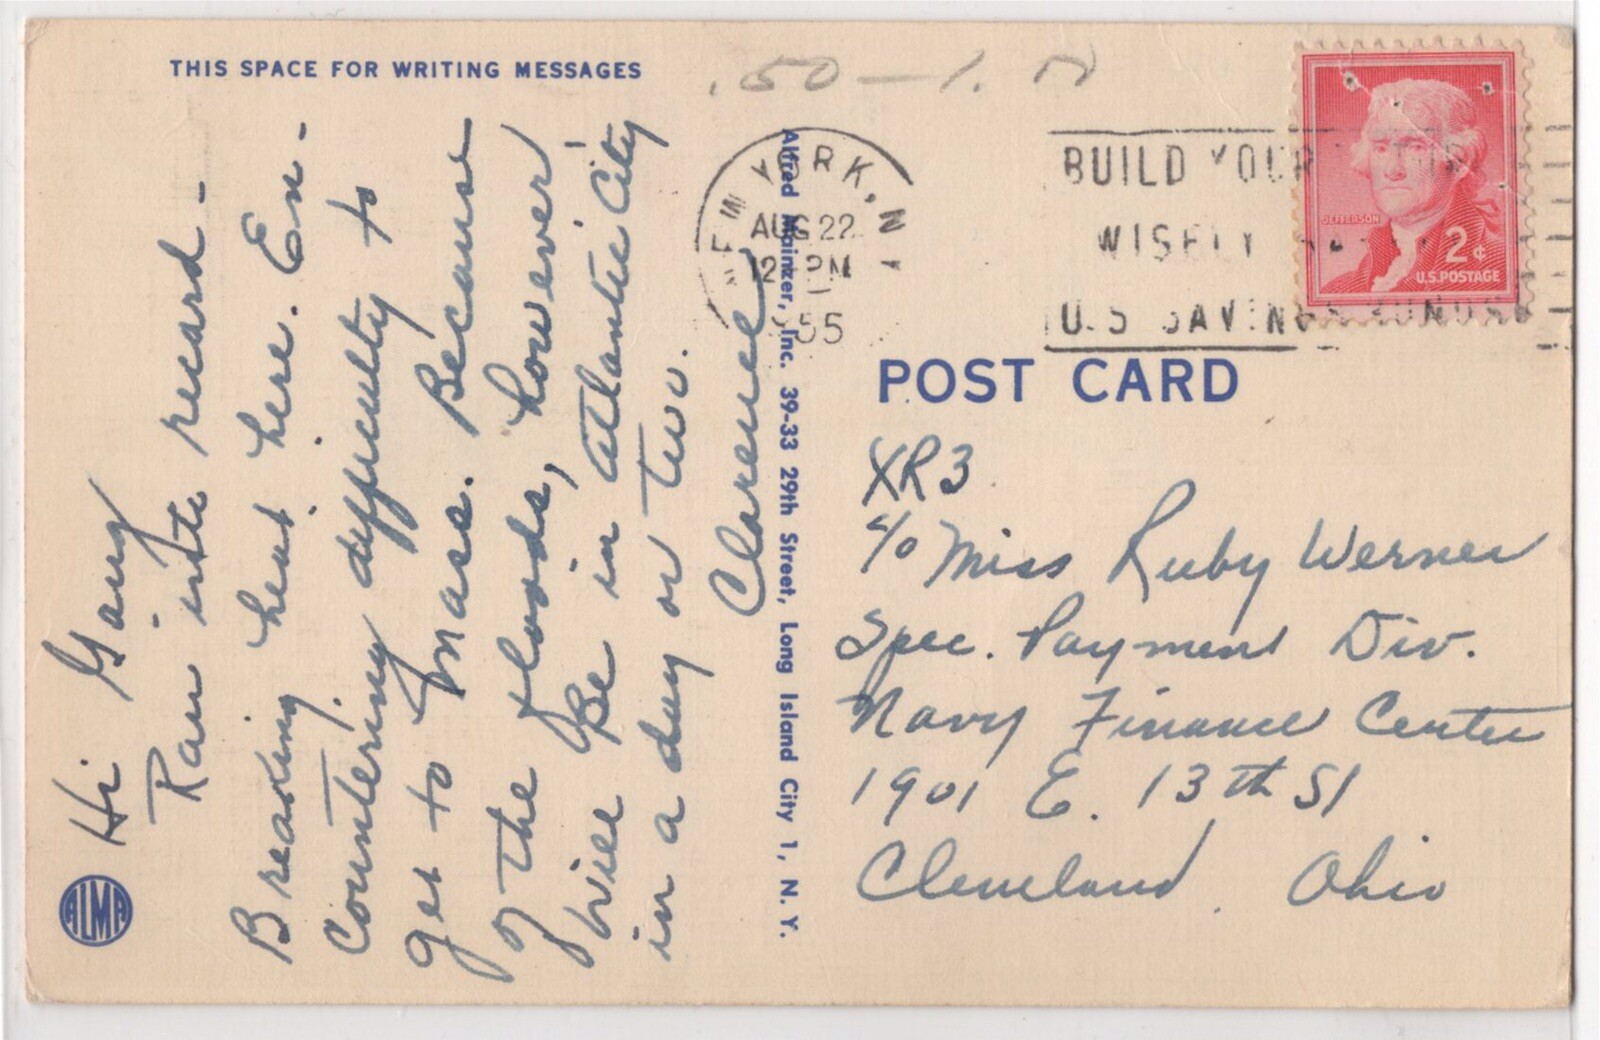 THIS SPACE FOR WRITING MESSAGES
.50 — 1.
Hi Gang
Ran into record -
Breaking heat here. En-
countering difficulty to
get to Mass. Because
of the floods, however
Will Be in Atlantic City
in a day or two.
Clarence
ALMA
Alfred Mainzer, Inc. 39-33 29th Street, Long Island City 1, N. Y.
NEW YORK, N
AUG 22
12 PM
55
BUILD YOUR
WISELY
U.S SAVINGS BONDS
JEFFERSON
2¢
U.S. POSTAGE
POST CARD
XR3
c/o Miss Ruby Werner
Spec. Payment Div.
Navy Finance Center
1901 E. 13th St
Cleveland, Ohio